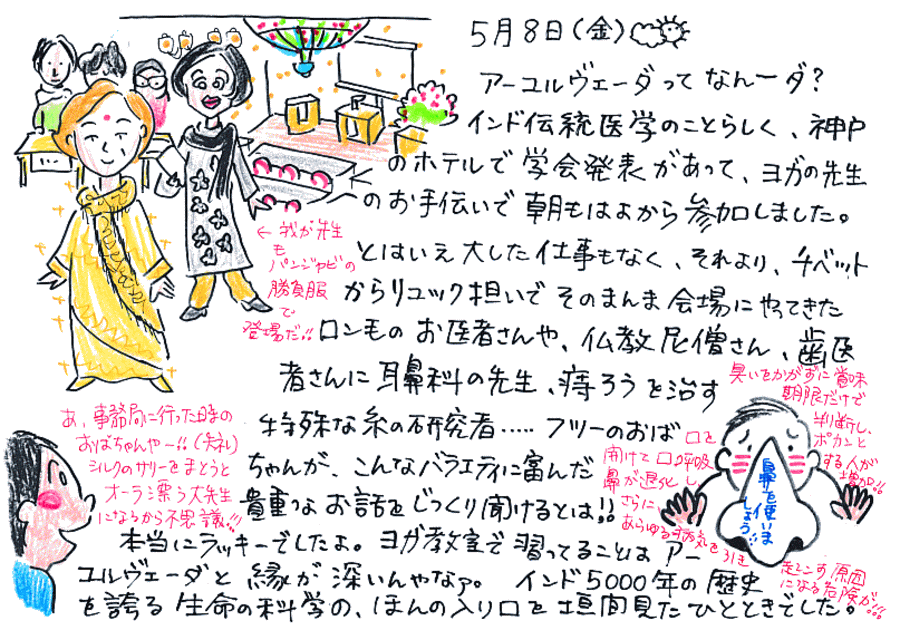 5月8日(金)
アーユルヴェーダってなんーダ?
インド伝統医学のことらしく、神戸
のホテルで学会発表があって、ヨガの先生
のお手伝いで朝もはよから参加しました。
とはいえ大した仕事もなく、それより、チベット
からリュック担いでそのまんま会場にやってきた
ロン毛のお医者さんや、仏教尼僧さん、歯医
者さんに耳鼻科の先生、痔ろうを治す
特殊な糸の研究者‥‥‥フツーのおば
ちゃんが、こんなバラエティに富んだ
貴重なお話をじっくり聞けるとは!!
本当にラッキーでしたよ。ヨガ教室で習ってることはアー
ユルヴェーダと縁が深いんやなァ。インド5000年の歴史
を誇る生命の科学の、ほんの入り口を垣間見たひとときでした。
←我が先生
も
パンジャビの
勝負服
で
登場だ!!
あ、事務局に行った時の
おばちゃんやー!!(失礼)
シルクのサリーをまとうと
オーラ漂う大先生
になるから不思議!!!
臭いをかがずに賞味
期限だけで
判断し、
ポカンと
口を
開けて口呼吸
する人が
増加!!
鼻が退化し、
さらに
あらゆる病気を引き
起こす原因
になる危険が!!!
鼻を使いま
しょう!!